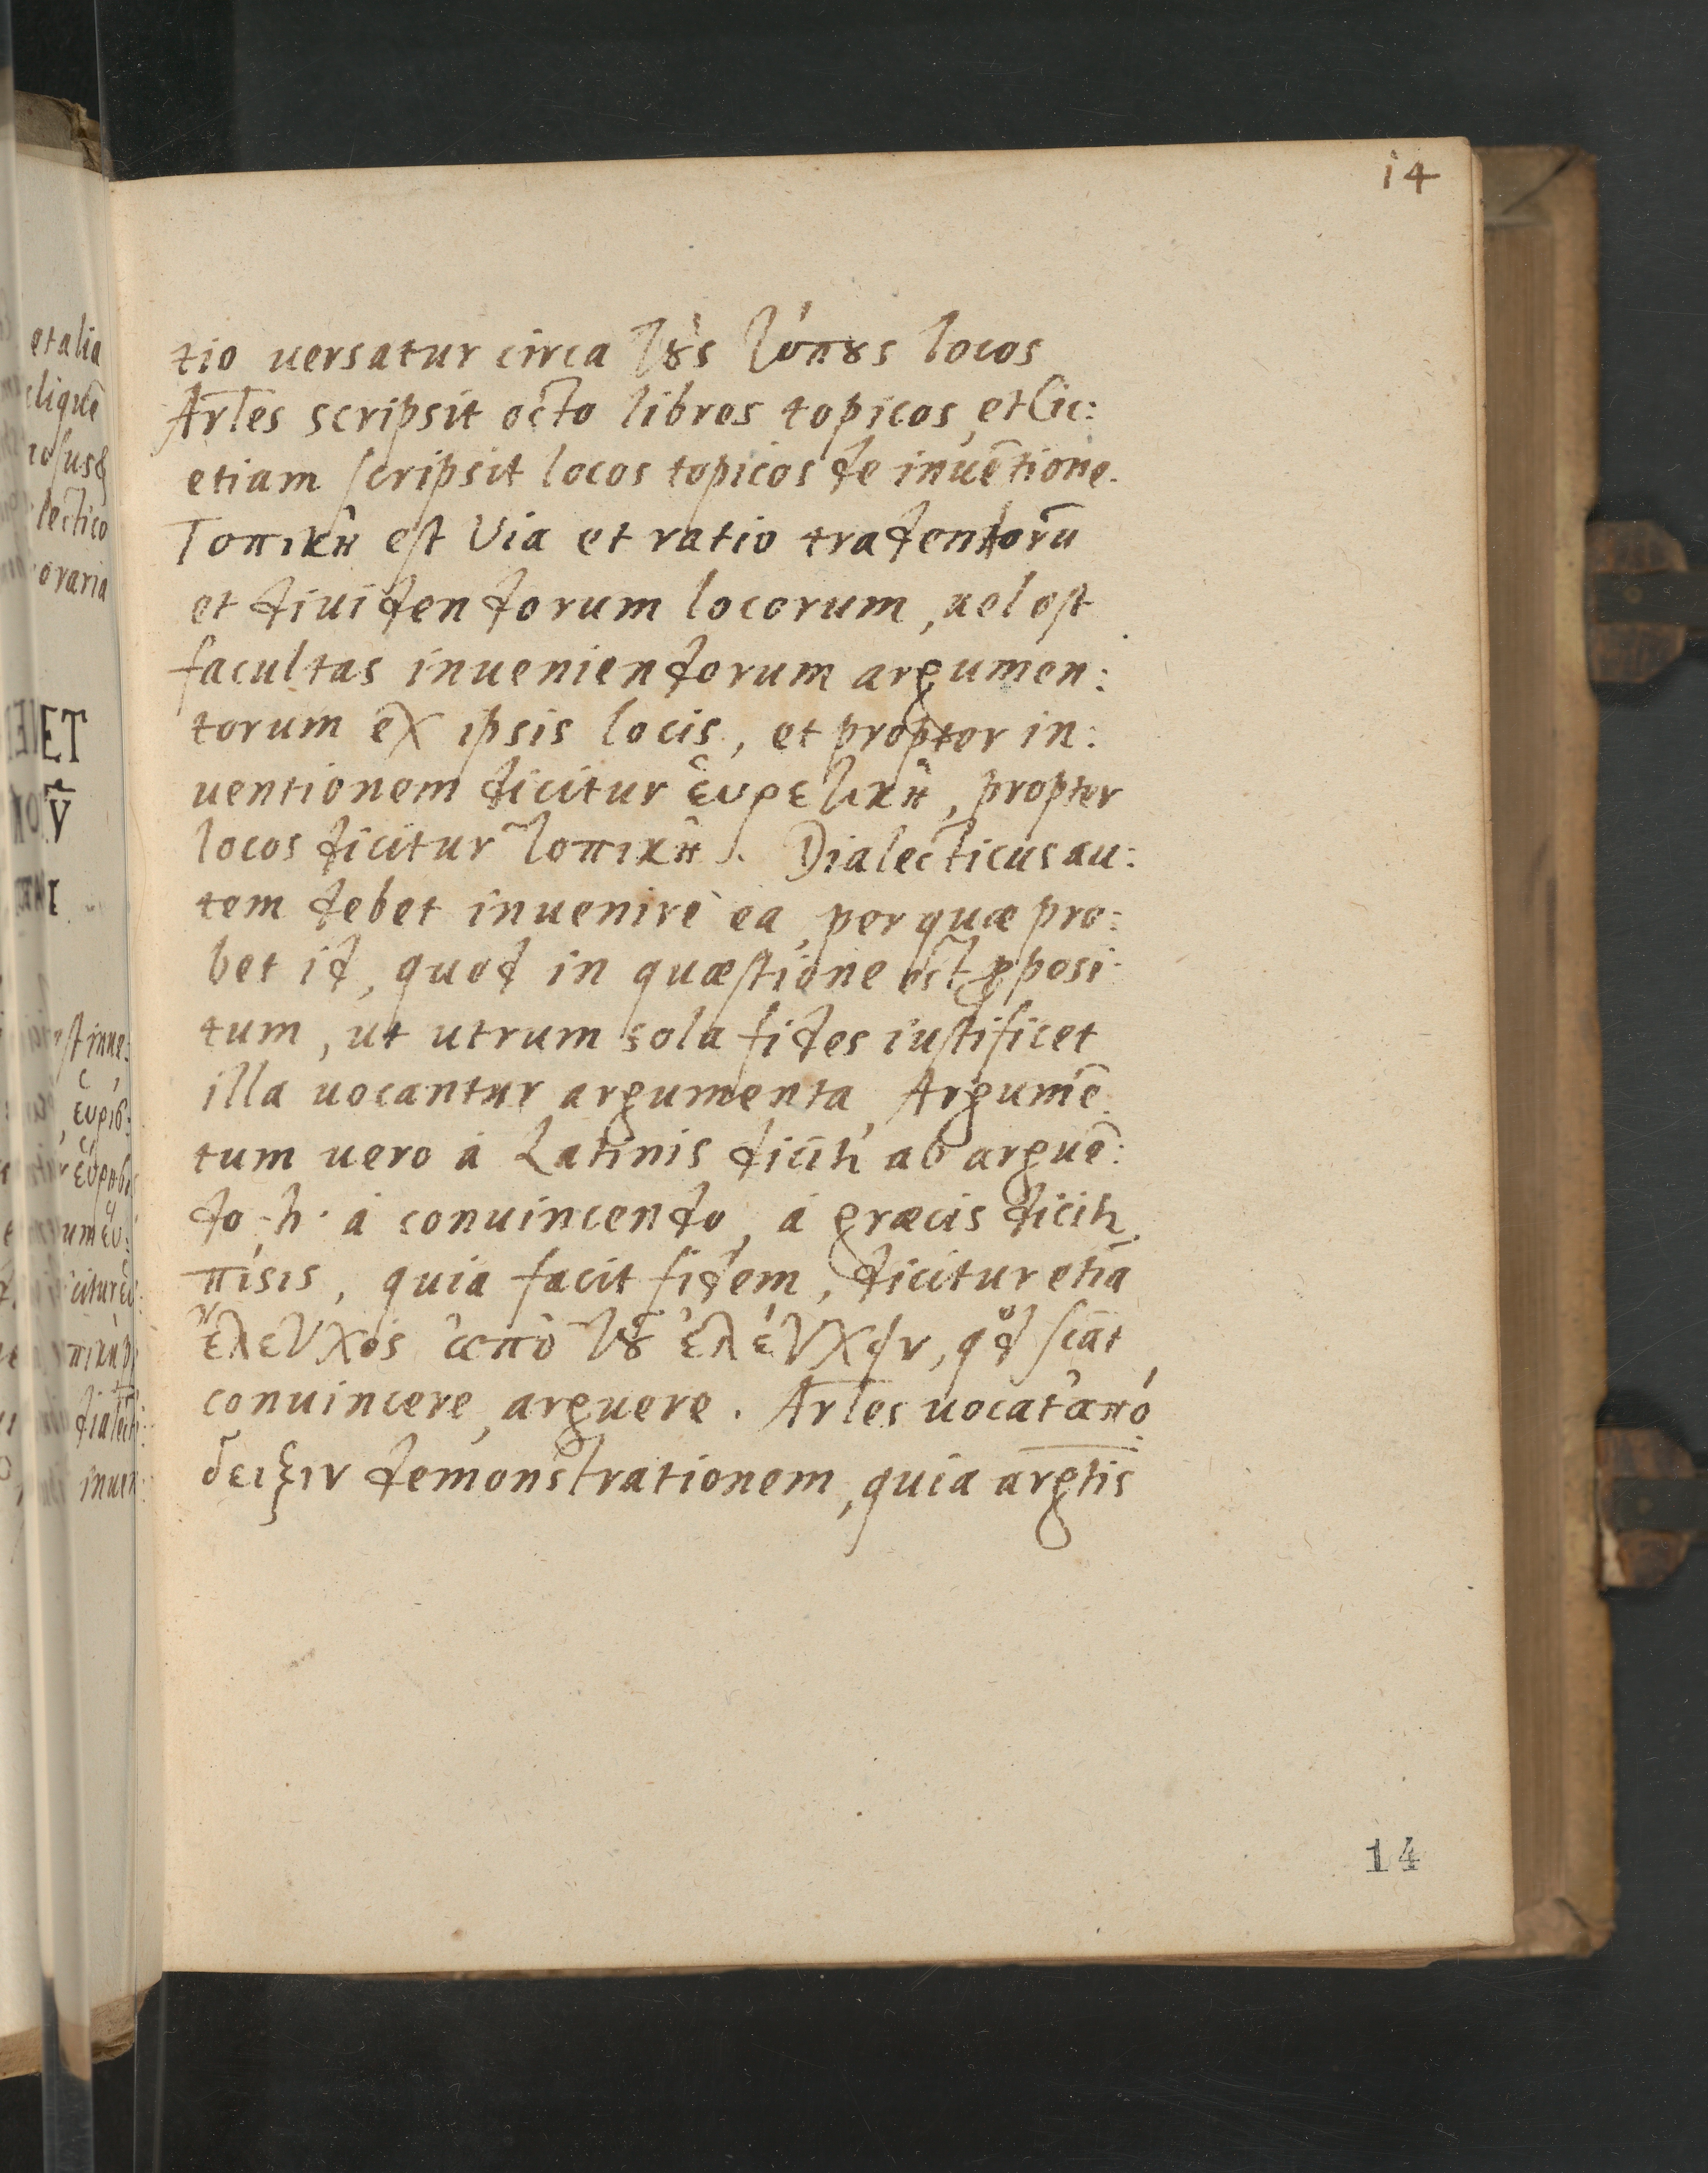 14
tio uersatur circa τȣ̀ς τόπȣς locos
Ar̄les scripsit octo libros topicos, et Cic:
etiam scripsit locos topicos de inuētione.
Τοπικὴ est Via et ratio tradendorū
et diuidendorum locorum, uel est
facultas inueniendorum argumen:
torum ex ipsis locis, et propter in:
uentionem dicitur ἑυρετικὴ, propter
locos dicitur τοπικὴ. Dialecticus au:
tem debet inuenire ea, per quæ pro:
bet id, quod in quæstione est ꝓposi:
tum, ut utrum sola fides iustificet
illa uocantur argumenta, Argumē:
tum uero á Latinis dicitr ab arguē:
do .h. á conuincendo, á græcis dicitr
πίςις, quia facit fidem, dicitur etiā
ἔλεγχος ἀπὸ τȣ͂ ἐλέγχειν, qd sciāt
conuincere, arguere. Ar̄les uocat ἀπό:
δειξιν demonstrationem, quia argtis
14
et alia
lectico
oraria
ET